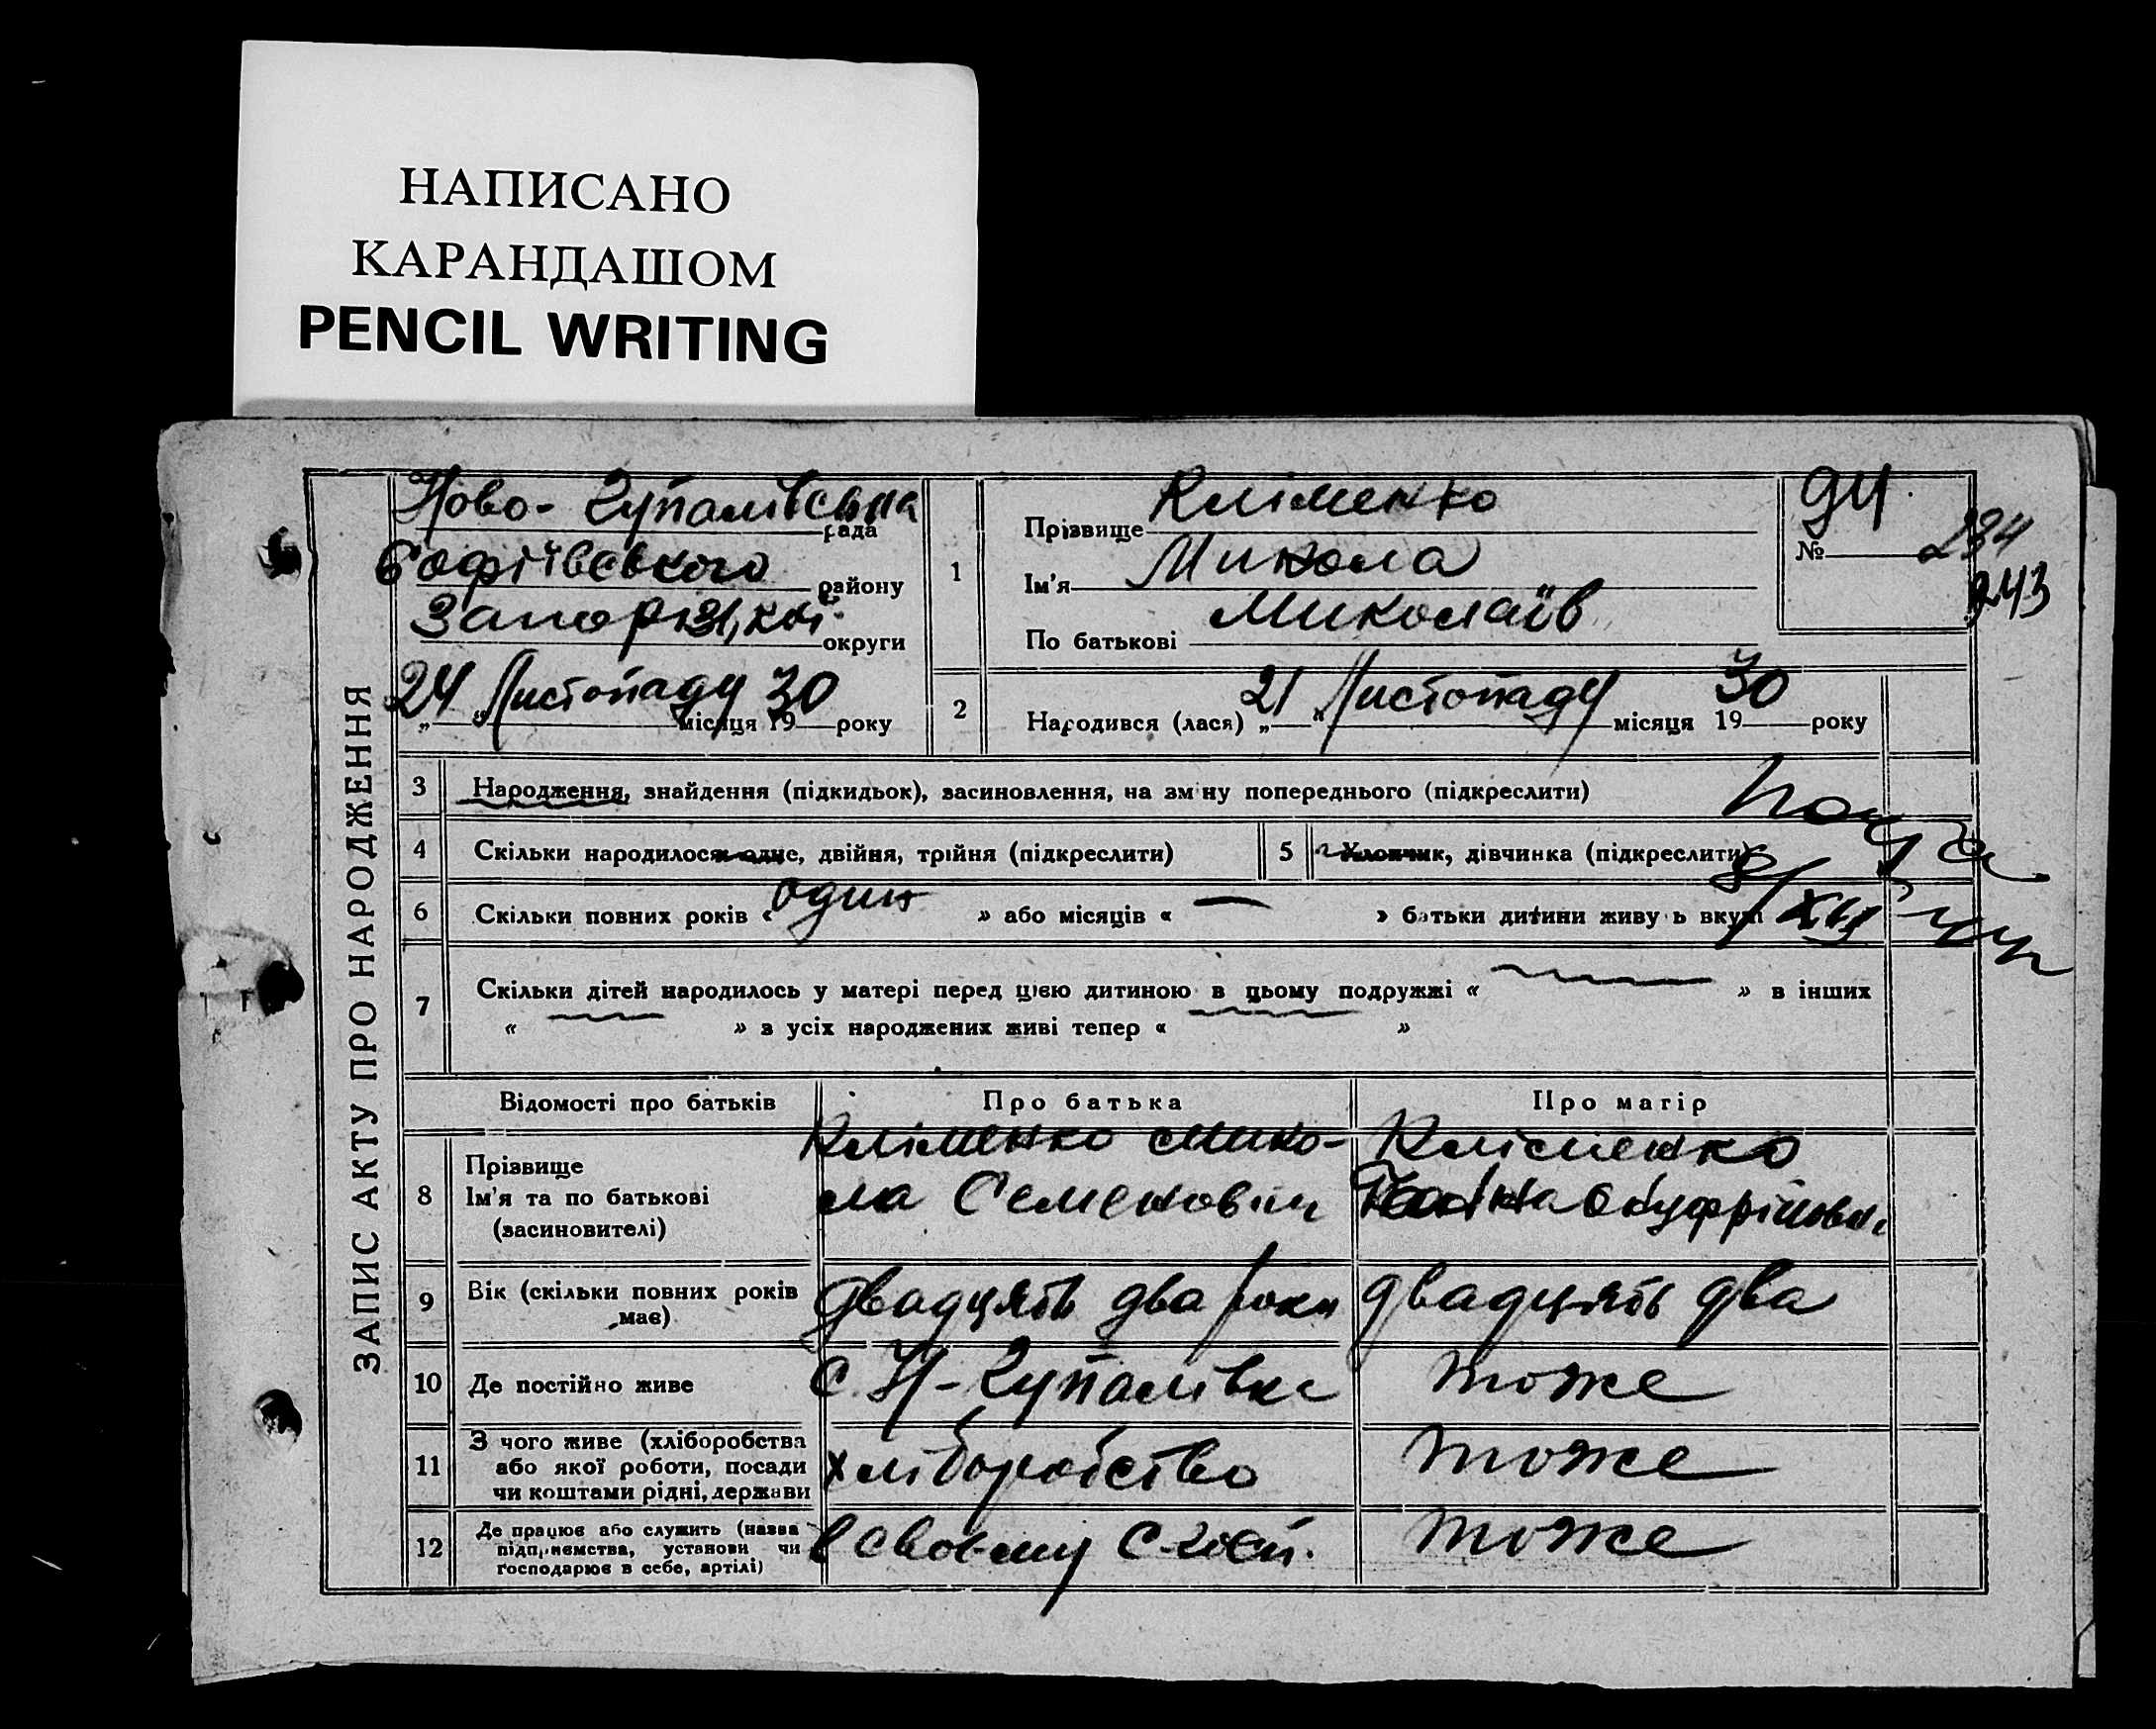 НАПИСАНО
КАРАНДАШОМ
PENCIL WRITING
ЗАПИС АКТУ ПРО НАРОДЖЕННЯ
Ново-Гупалівська рада
Софіївського району
Запоріз, кої округи
„24“ Листопаду місяця 1930 року
1
Прізвище Кліменко
Ім'я Микола
По батькові Миколаїв
94
№
234
243
2
Народився (лася) „21“ Листопаду місяця 1930 року
3 Народження, знайдення (підкидьок), засиновлення, на зміну попереднього (підкреслити)
4 Скільки народилося одне, двійня, трійня (підкреслити)
5 Хлопчик, дівчинка (підкреслити)
6 Скільки повних років « один » або місяців « — » батьки дитини живуть вкупі
8/XII
7 Скільки дітей народилось у матері перед цією дитиною в цьому подружжі « » в інших
« » з усіх народжених живі тепер « »
Відомості про батьків Про батька Про матір
8 Прізвище
Ім'я та по батькові
(засиновителі)
Кліменко Мико-
ла Семенович
Кліменко
9 Вік (скільки повних років
має)
двадцять два роки двадцять два
10 Де постійно живе с. Н-Гупалівка тоже
11 З чого живе (хліборобства
або якої роботи, посади
чи коштами рідні, держави
хліборобство тоже
12 Де працює або служить (назва
підприємства, установи чи
господарює в себе, артілі)
в своєму с-госп. тоже